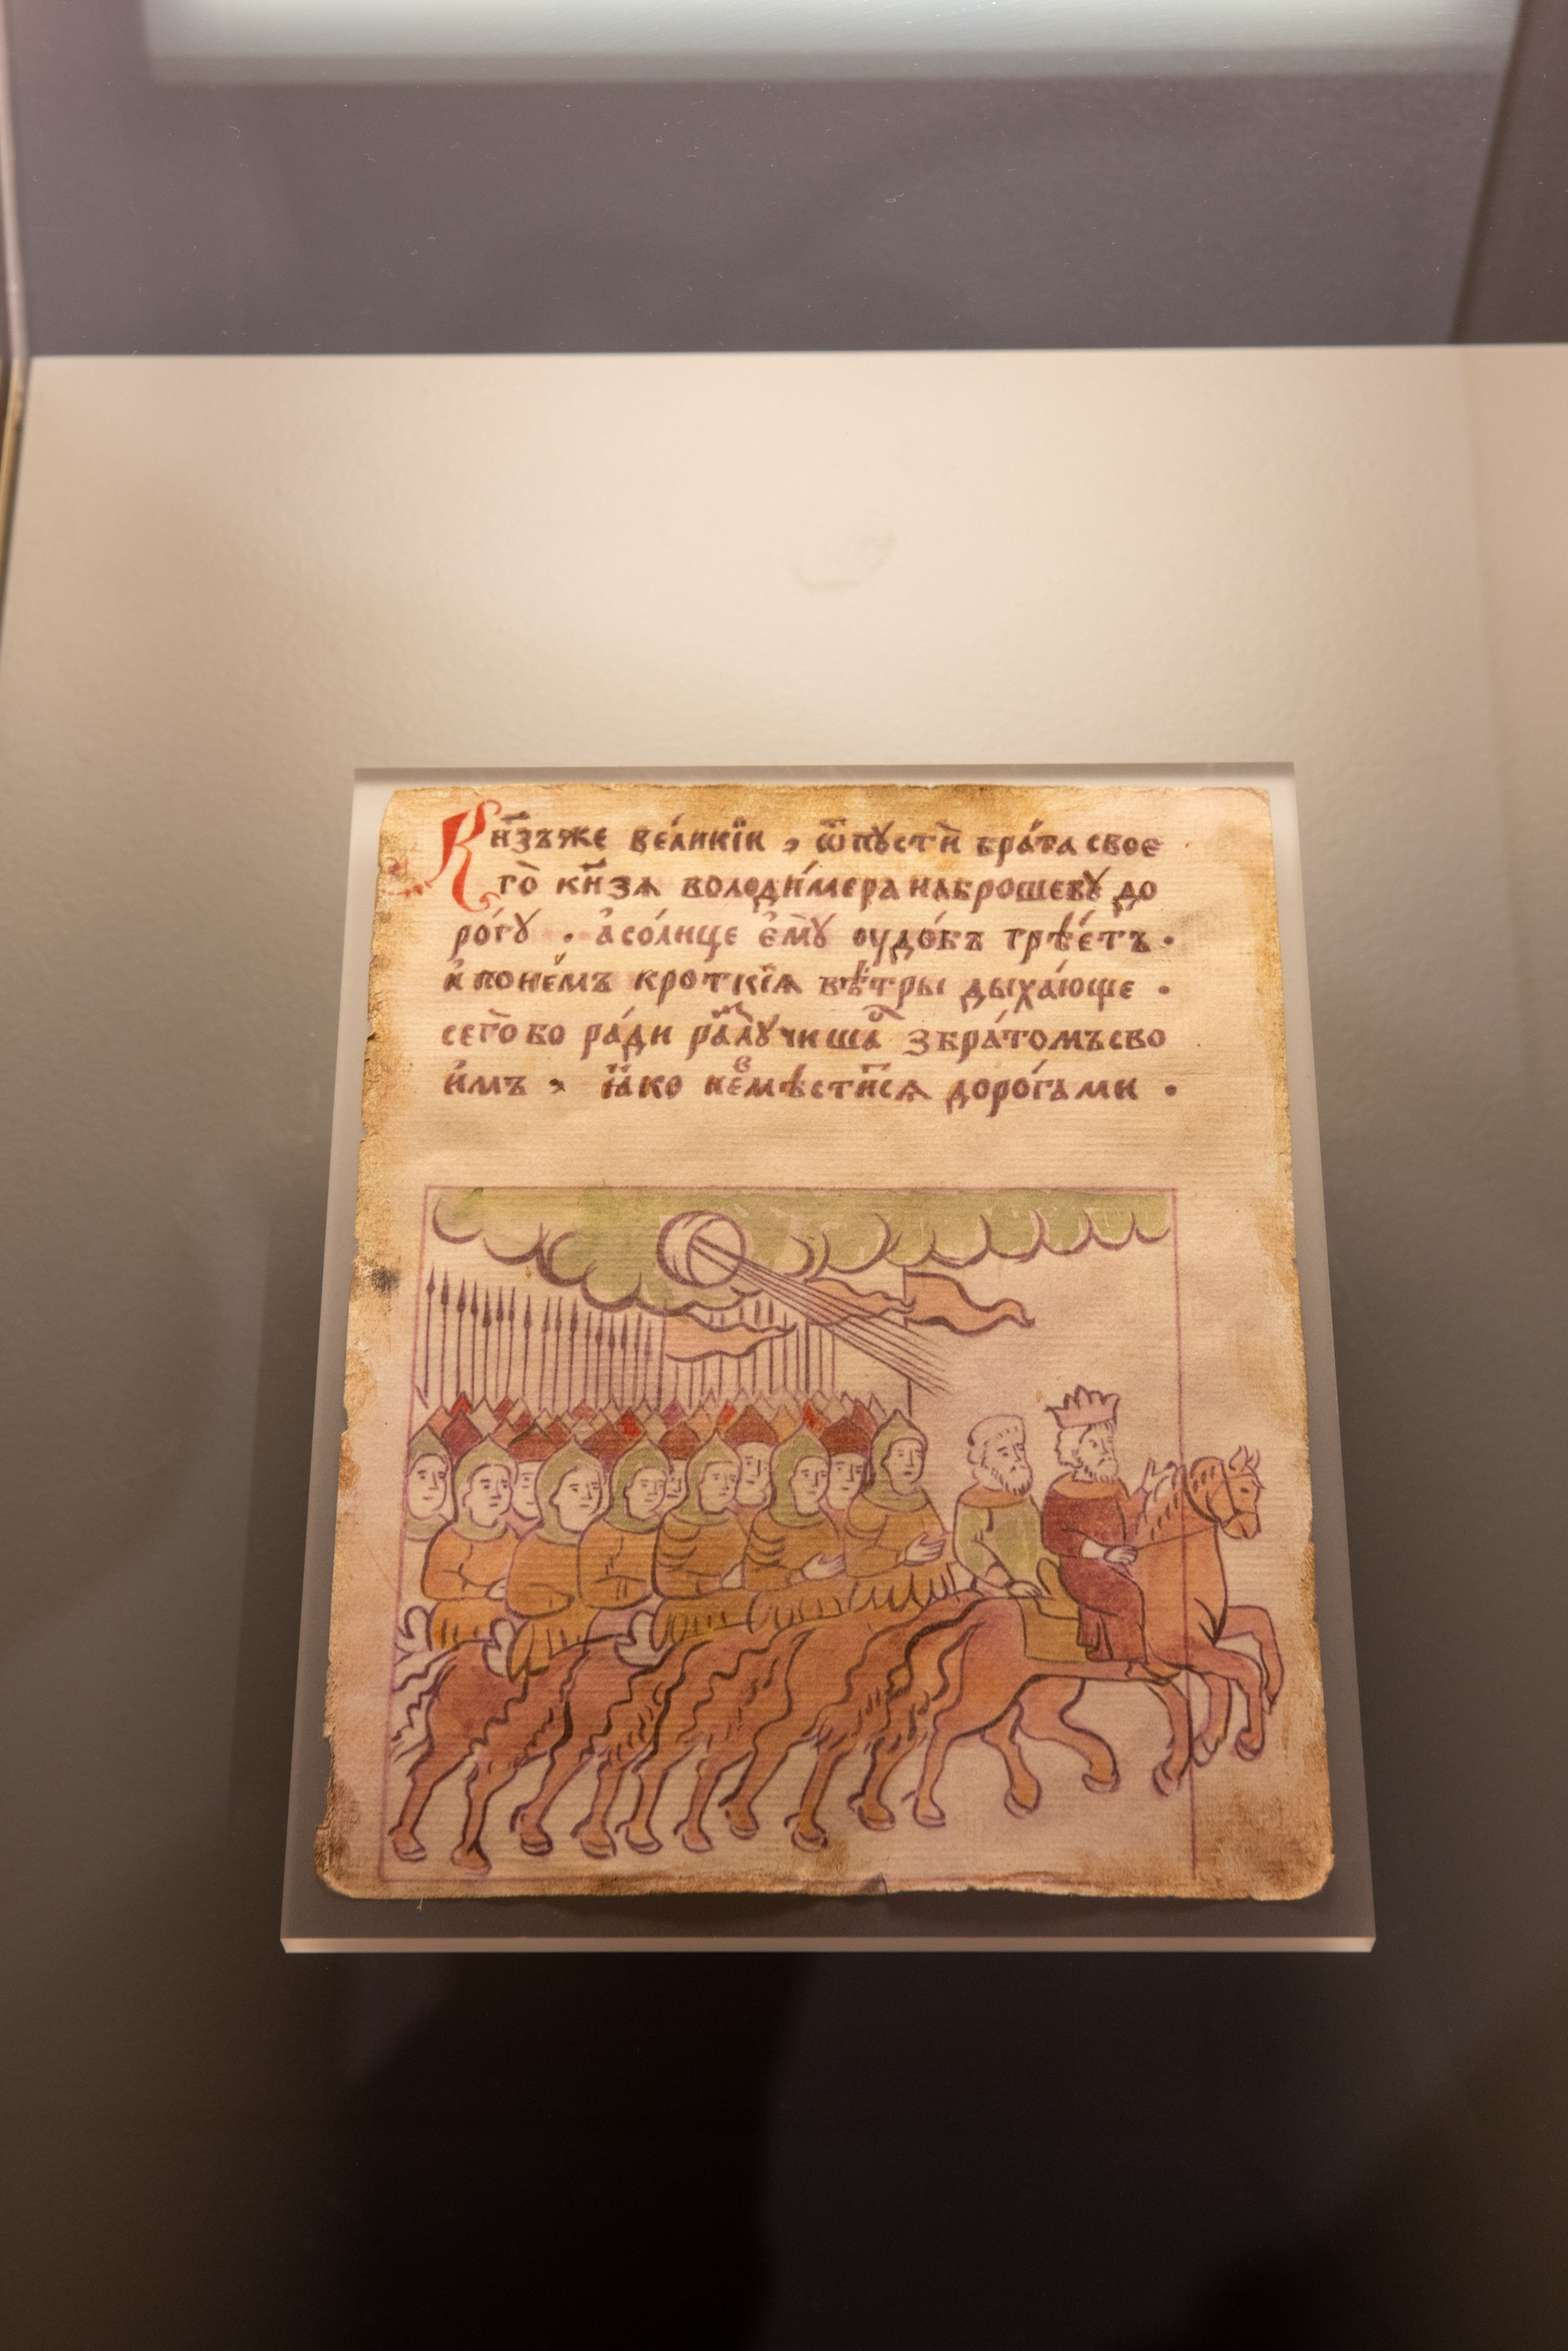 Кн҃зъже вели́кїи , ѿпꙋстѝ бра́та свое
го̀ кн҃зѧ володи́мера на брошевꙋ до
ро́гꙋ . а҆со́лнце є҆мꙋ̀ ѹдо́бь трѣ́етъ .
и҆ поне́мъ кро́ткїѧ вѣ́тры дыха́юще .
сего̀ бо ра́ди разлꙋчишаⷭ҇ збра́томъ сво
и́мъ , ꙗ҆́ко неⷡ҇мѣсти́ⷮсѧ доро́гами .